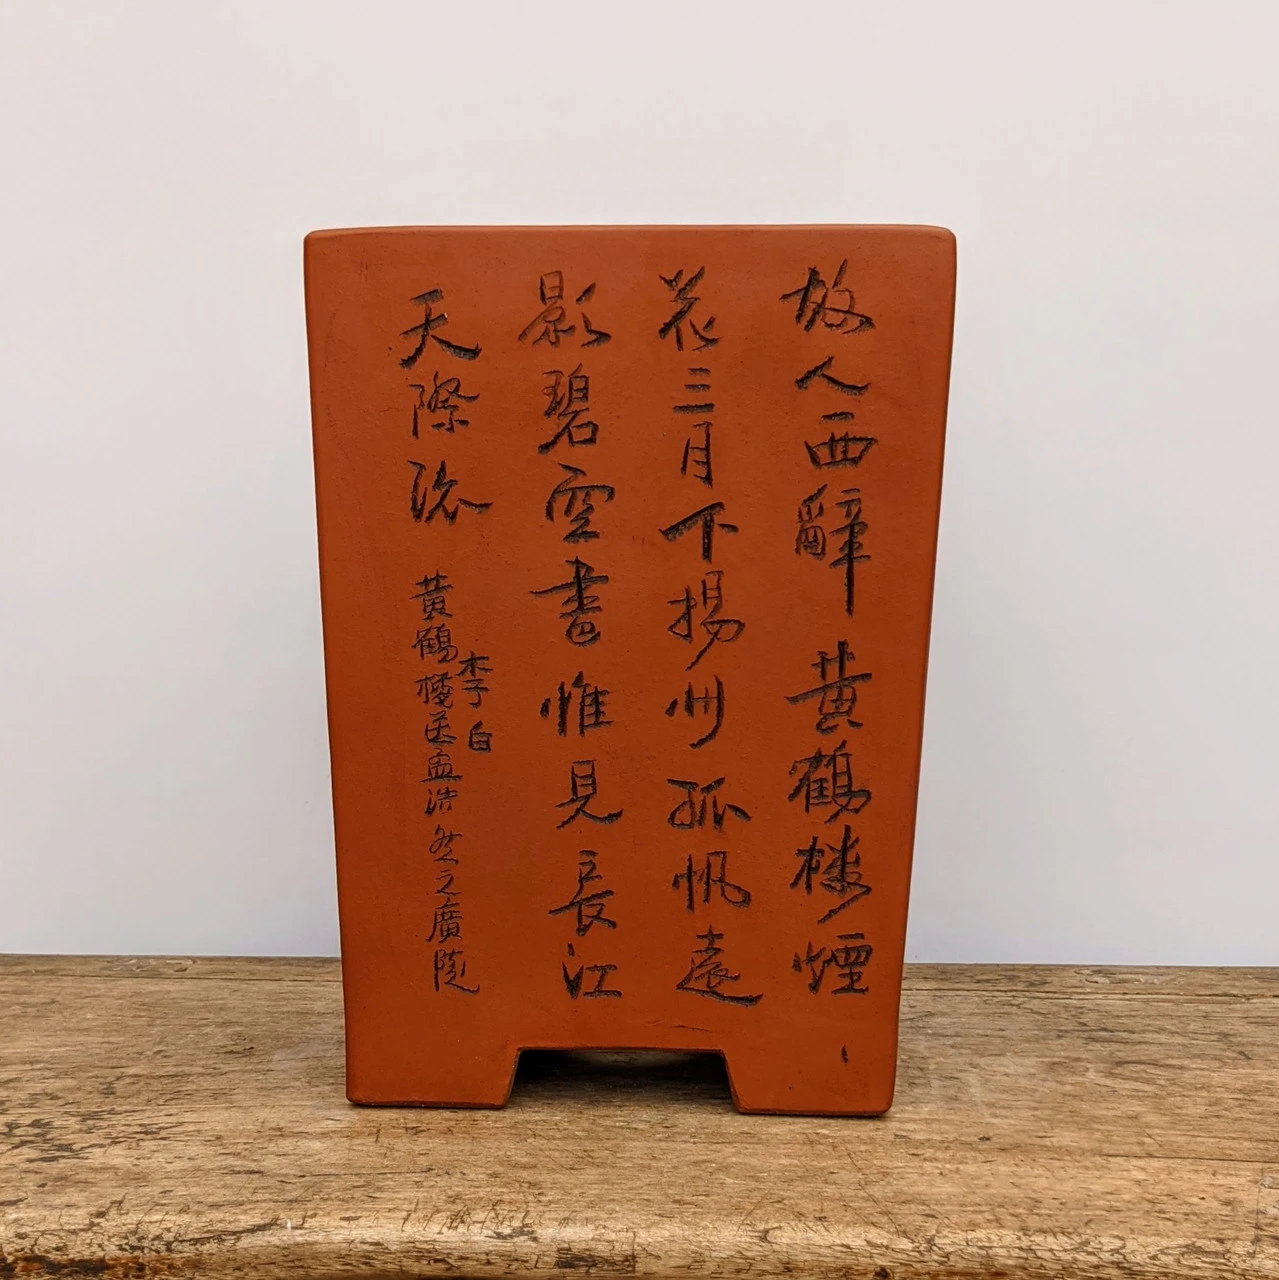 故人西辭黃鶴樓煙
花三月下揚州孤帆遠
影碧空盡惟見長江
天際流
李白
黃鶴樓送孟浩然之廣陵